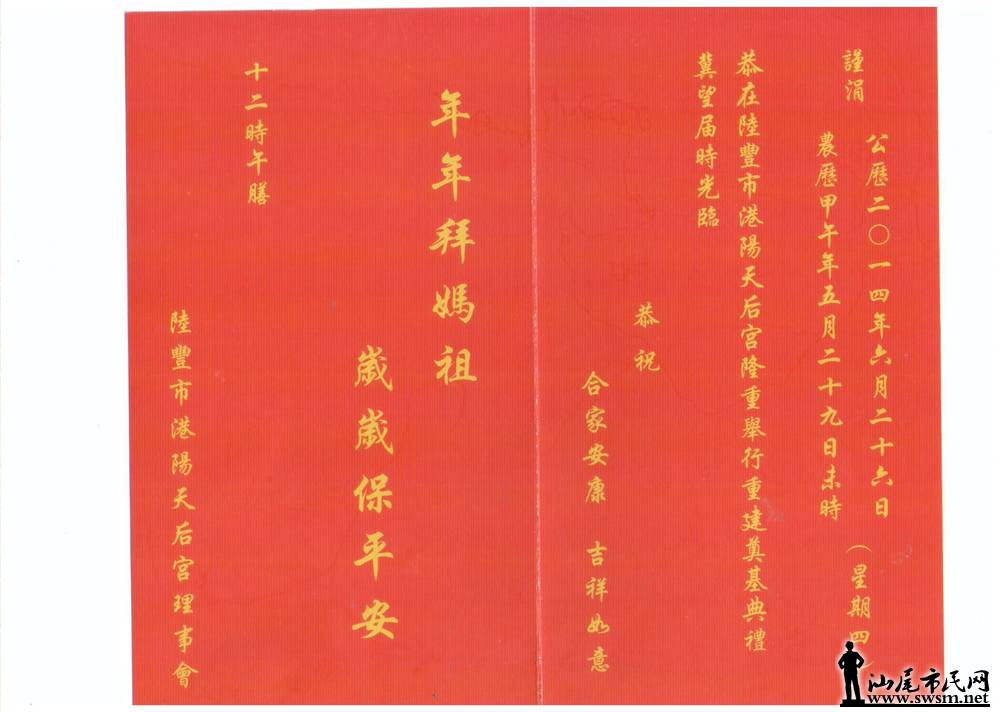 謹涓
公歷二〇一四年六月二十六日
農歷甲午年五月二十九日未時
(星期四)
恭在陸豐市港陽天后宮隆重舉行重建奠基典禮
冀望届時光臨
恭祝
合家安康 吉祥如意
年年拜媽祖
歲歲保平安
十二時午膳
陸豐市港陽天后宮理事會
汕尾市民网
www.swsm.net